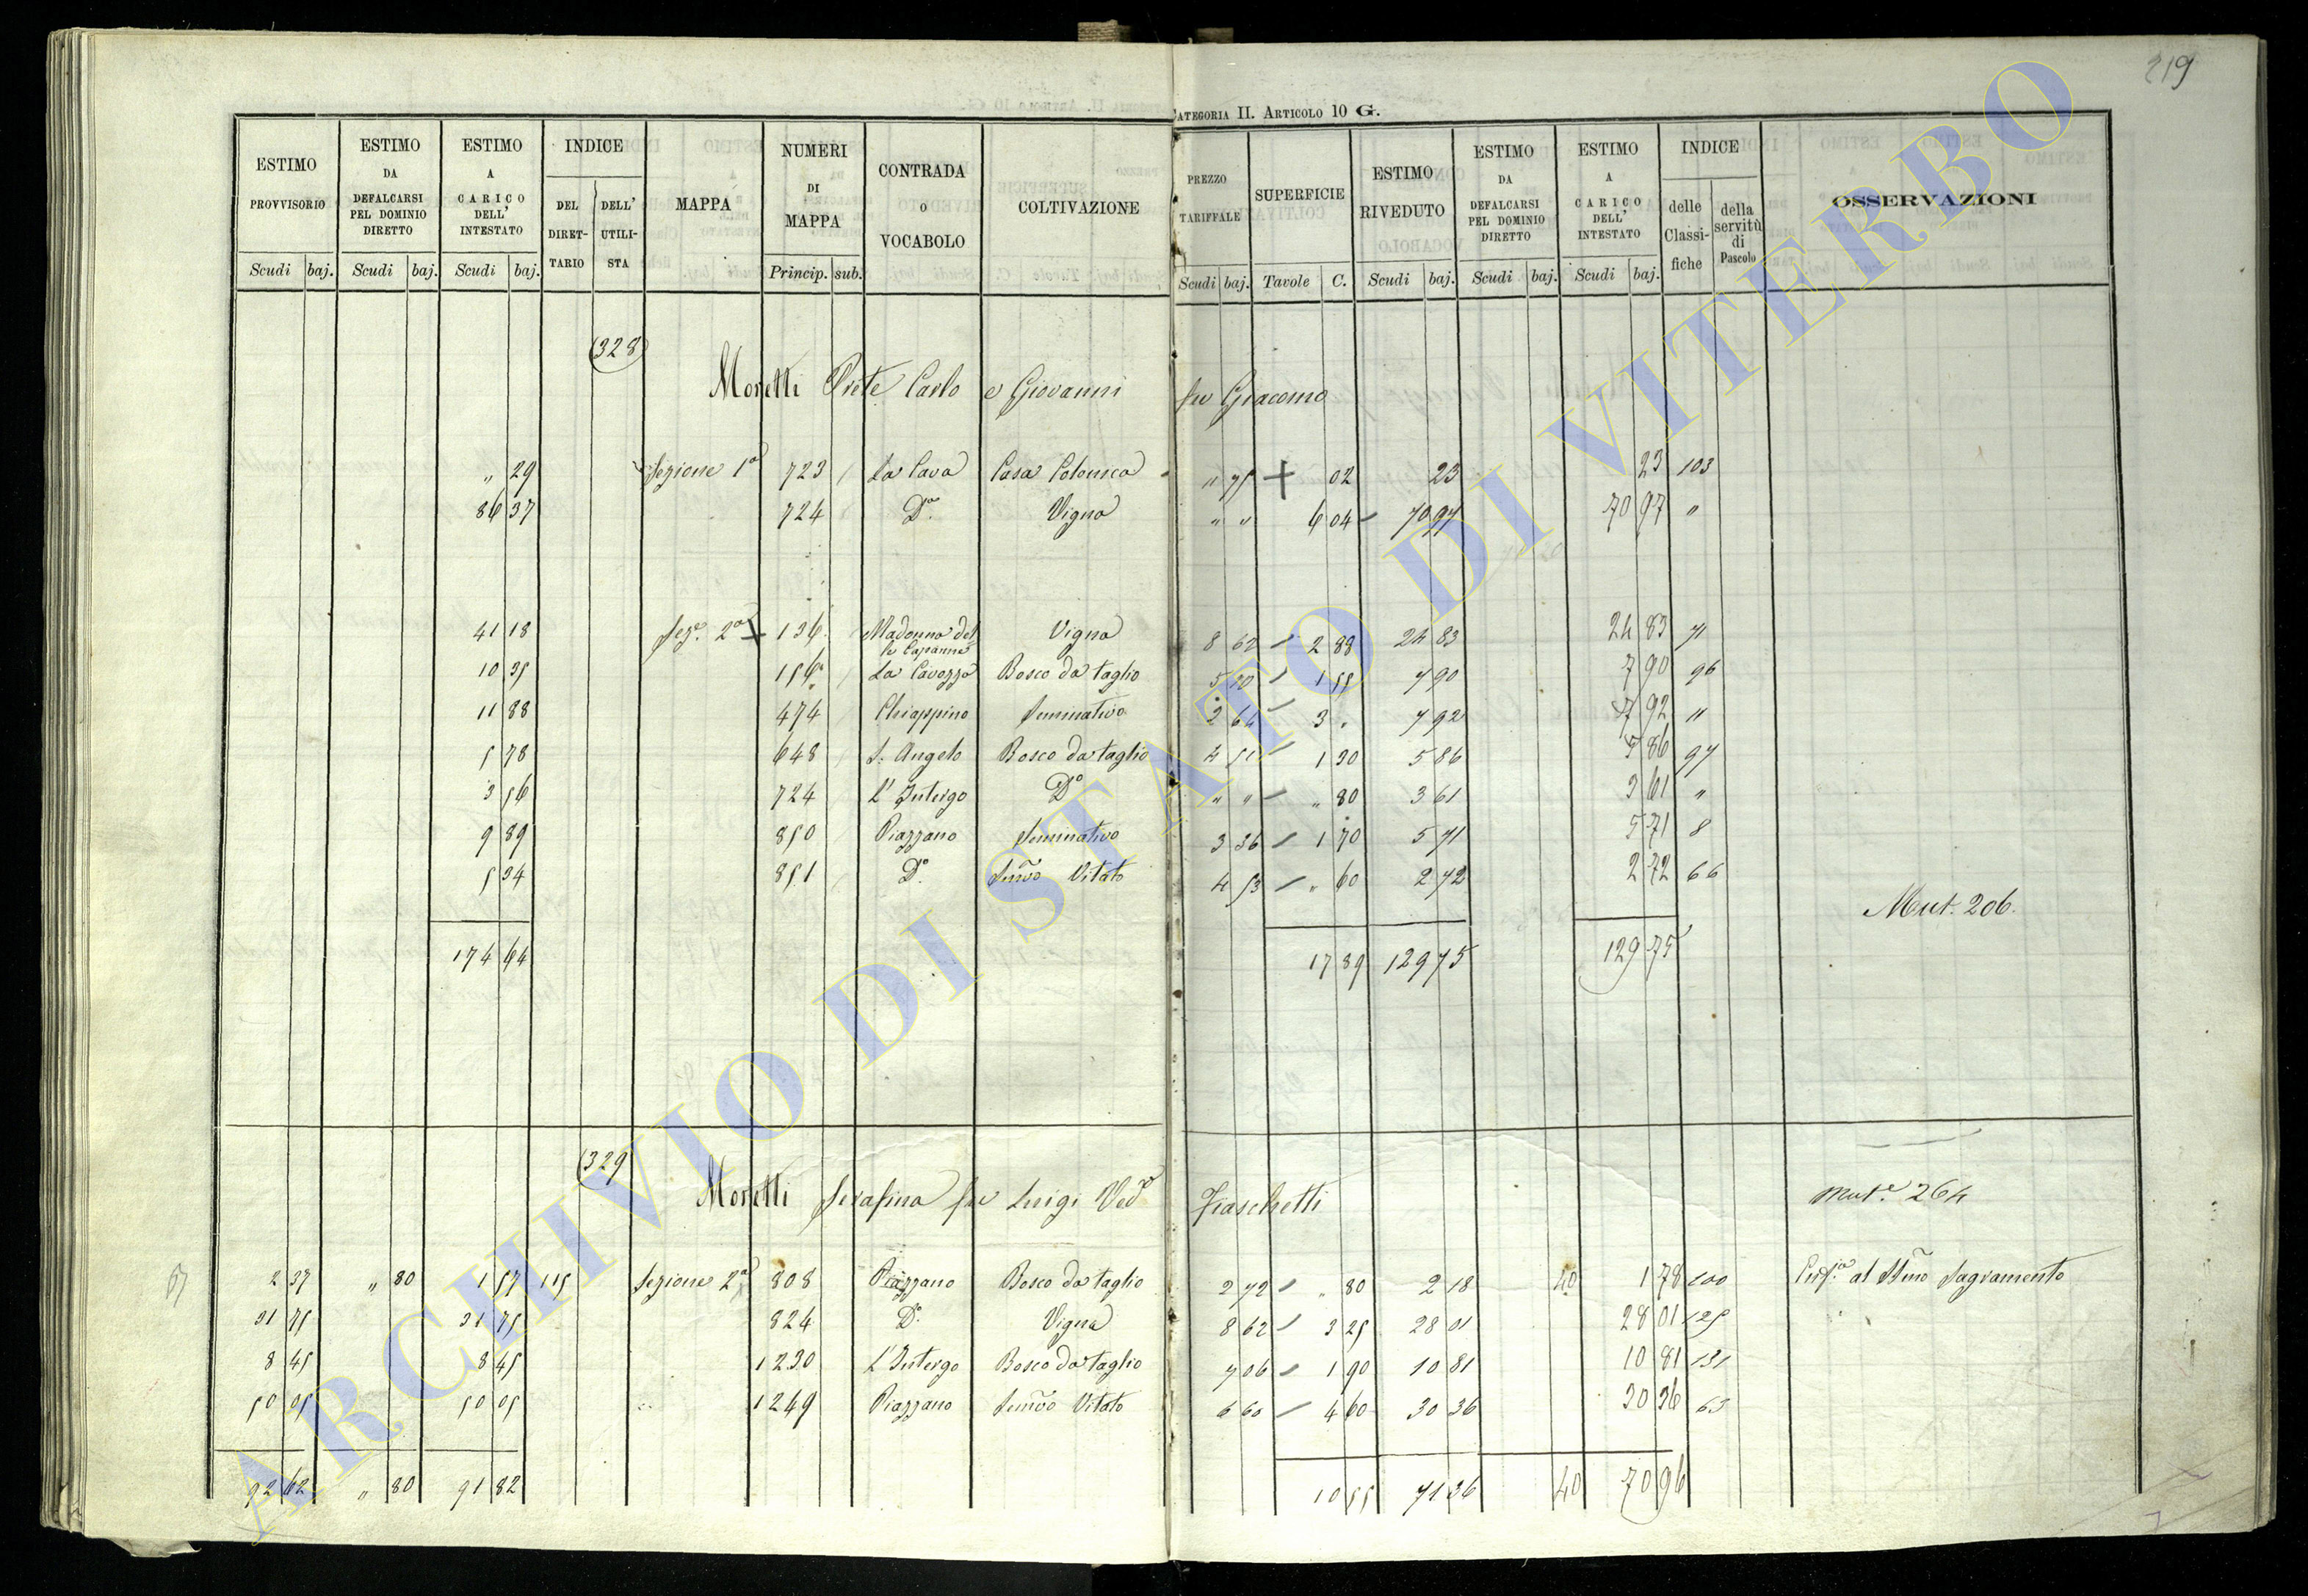 219
CATEGORIA II. ARTICOLO 10 G.
ESTIMO PROVVISORIO Scudi baj. | ESTIMO DA DEFALCARSI PEL DOMINIO DIRETTO Scudi baj. | ESTIMO A CARICO DELL' INTESTATO Scudi baj. | INDICE DEL DIRETTARIO | DELL' UTILISTA | MAPPA | NUMERI DI MAPPA Princip. sub. | CONTRADA O VOCABOLO | COLTIVAZIONE | PREZZO TARIFFALE Scudi baj. | SUPERFICIE Tavole C. | ESTIMO RIVEDUTO Scudi baj. | ESTIMO DA DEFALCARSI PEL DOMINIO DIRETTO Scudi baj. | ESTIMO A CARICO DELL' INTESTATO Scudi baj. | INDICE delle Classifiche | della servitù di Pascolo | OSSERVAZIONI
(328)
Moretti Prete Carlo e Giovanni fu Giacomo
" 29 Sezione 1a 723 La Cava Casa Colonica " 75 02 23 23 103
86 37 724 Do. Vigna " " 6 04 70 97 70 97 "
41 18 Seze. 2a 136 Madonna delle Capanne Vigna 8 62 2 88 24 83 24 83 71
10 35 156 La Cavozza Bosco da taglio 5 10 1 55 7 90 7 90 96
11 88 474 Chiappino Seminativo 2 64 3 " 7 92 7 92 11
5 78 648 S. Angelo Bosco da taglio 4 51 1 30 5 86 5 86 97
3 56 724 L'Intergo Do " " " 80 3 61 3 61 "
9 89 850 Piazzano Seminativo 3 36 1 70 5 71 5 71 8
5 34 851 Do. Semvo Vitato 4 53 " 60 2 72 2 72 66
Mut. 206.
174 64 17 89 129 75 129 75
(329)
Moretti Serafina fu Luigi Veda Fiaschetti
Mute. 264
2 37 " 80 1 57 115 Sezione 2a 808 Piazzano Bosco da taglio 2 72 " 80 2 18 40 1 78 100 al SSmo Sagramento
31 75 31 75 824 Do. Vigna 8 62 3 25 28 01 28 01 125
8 45 8 45 1230 L'Intergo Bosco da taglio 7 06 1 90 10 81 10 81 131
50 05 50 05 1249 Piazzano Semvo Vitato 6 60 4 60 30 36 30 36 63
92 62 " 80 91 82 10 55 71 36 40 70 96
ARCHIVIO DI STATO DI VITERBO